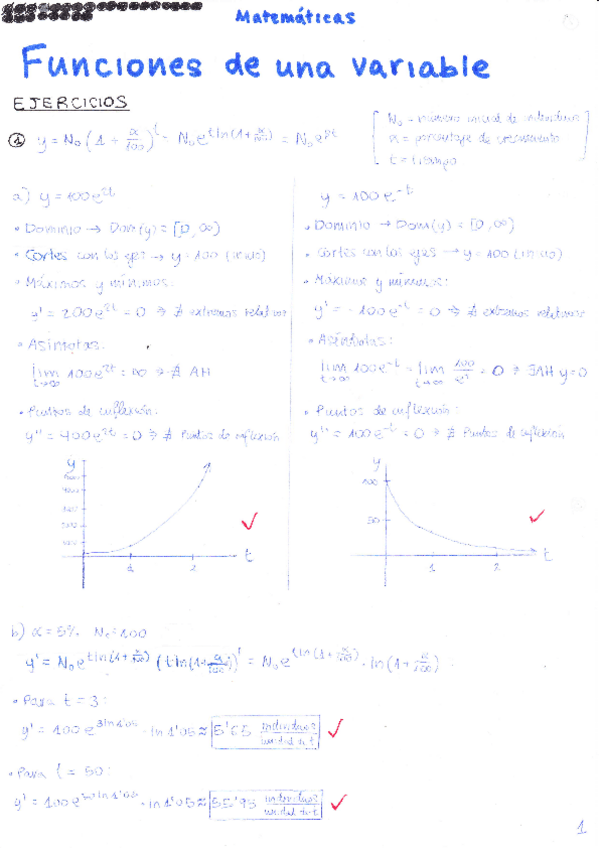 Matemáticas
Funciones de una variable
EJERCICIOS
① y = N₀ (1 + α/100)^t = N₀e^(t ln(1+α/100)) = N₀e^(βt)
N₀ = número inicial de individuos
α = porcentaje de crecimiento
t = tiempo
a) y = 100e^(2t)
• Dominio → Dom(y) = [0, ∞)
• Cortes con los ejes → y = 100 (inicio)
• Máximos y mínimos:
y' = 200e^(2t) = 0 ⇒ ∄ extremos relativos
• Asíntotas:
lim t→∞ 100e^(2t) = ∞ ⇒ ∄ AH
• Puntos de inflexión:
y'' = 400e^(2t) = 0 ⇒ ∄ Puntos de inflexión
y
t
1 2
✓
y = 100e^(-t)
• Dominio → Dom(y) = [0, ∞)
• Cortes con los ejes → y = 100 (inicio)
• Máximos y mínimos:
y' = -100e^(-t) = 0 ⇒ ∄ extremos relativos
• Asíntotas:
lim t→∞ 100e^(-t) = lim t→∞ 100/e^t = 0 ⇒ ∃AH y=0
• Puntos de inflexión:
y'' = 100e^(-t) = 0 ⇒ ∄ Puntos de inflexión
y
100
50
t
1 2
✓
b) α = 5% N₀ = 100
y' = N₀e^(t ln(1+α/100)) (t ln(1+α/100))' = N₀e^(t ln(1+α/100)) · ln(1+α/100)
• Para t = 3:
y' = 100e^(3 ln 1'05) · ln 1'05 ≈ 5'65 individuos/unidad t ✓
• Para t = 50:
y' = 100e^(50 ln 1'05) · ln 1'05 ≈ 55'95 individuos/unidad t ✓
1